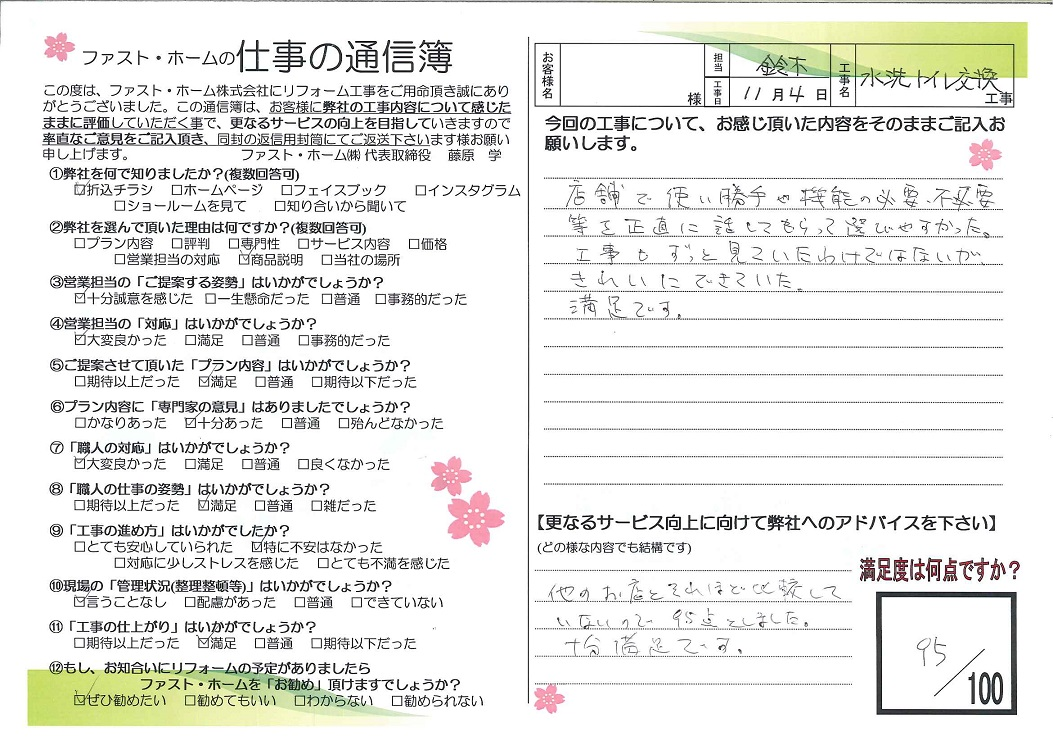 ファスト・ホームの仕事の通信簿
この度は、ファスト・ホーム株式会社にリフォーム工事をご用命頂き誠にあり
がとうございました。この通信簿は、お客様に弊社の工事内容について感じた
ままに評価していただく事で、更なるサービスの向上を目指していきますので
率直なご意見をご記入頂き、同封の返信用封筒にてご返送下さいます様お願い
申し上げます。 ファスト・ホーム㈱ 代表取締役 藤原 学
①弊社を何で知りましたか？(複数回答可)
☑折込チラシ □ホームページ □フェイスブック □インスタグラム
□ショールームを見て □知り合いから聞いて
②弊社を選んで頂いた理由は何ですか？(複数回答可)
□プラン内容 □評判 □専門性 □サービス内容 □価格
□営業担当の対応 ☑商品説明 □当社の場所
③営業担当の「ご提案する姿勢」はいかがでしょうか？
☑十分誠意を感じた □一生懸命だった □普通 □事務的だった
④営業担当の「対応」はいかがでしょうか？
☑大変良かった □満足 □普通 □事務的だった
⑤ご提案させて頂いた「プラン内容」はいかがでしょうか？
□期待以上だった ☑満足 □普通 □期待以下だった
⑥プラン内容に「専門家の意見」はありましたでしょうか？
□かなりあった ☑十分あった □普通 □殆んどなかった
⑦「職人の対応」はいかがでしょうか？
☑大変良かった □満足 □普通 □良くなかった
⑧「職人の仕事の姿勢」はいかがでしょうか？
□期待以上だった ☑満足 □普通 □雑だった
⑨「工事の進め方」はいかがでしたか？
□とても安心していられた ☑特に不安はなかった
□対応に少しストレスを感じた □とても不満を感じた
⑩現場の「管理状況(整理整頓等)」はいかがでしょうか？
☑言うことなし □配慮があった □普通 □できていない
⑪「工事の仕上がり」はいかがでしょうか？
□期待以上だった ☑満足 □普通 □期待以下だった
⑫もし、お知合いにリフォームの予定がありましたら
ファスト・ホームを「お勧め」頂けますでしょうか？
☑ぜひ勧めたい □勧めてもいい □わからない □勧められない
お客様名 様 担当 鈴木 工事日 11月4日 工事名 水洗トイレ交換工事
今回の工事について、お感じ頂いた内容をそのままご記入お
願いします。
店舗で使い勝手や機能の必要、不必要
等を正直に話してもらって選びやすかった。
工事もずっと見ていたわけではないが、
きれいにできていた。
満足です。
【更なるサービス向上に向けて弊社へのアドバイスを下さい】
(どの様な内容でも結構です)
他のお店とそれほど比較して
いないので 95点としました。
十分満足です。
満足度は何点ですか？
95/100